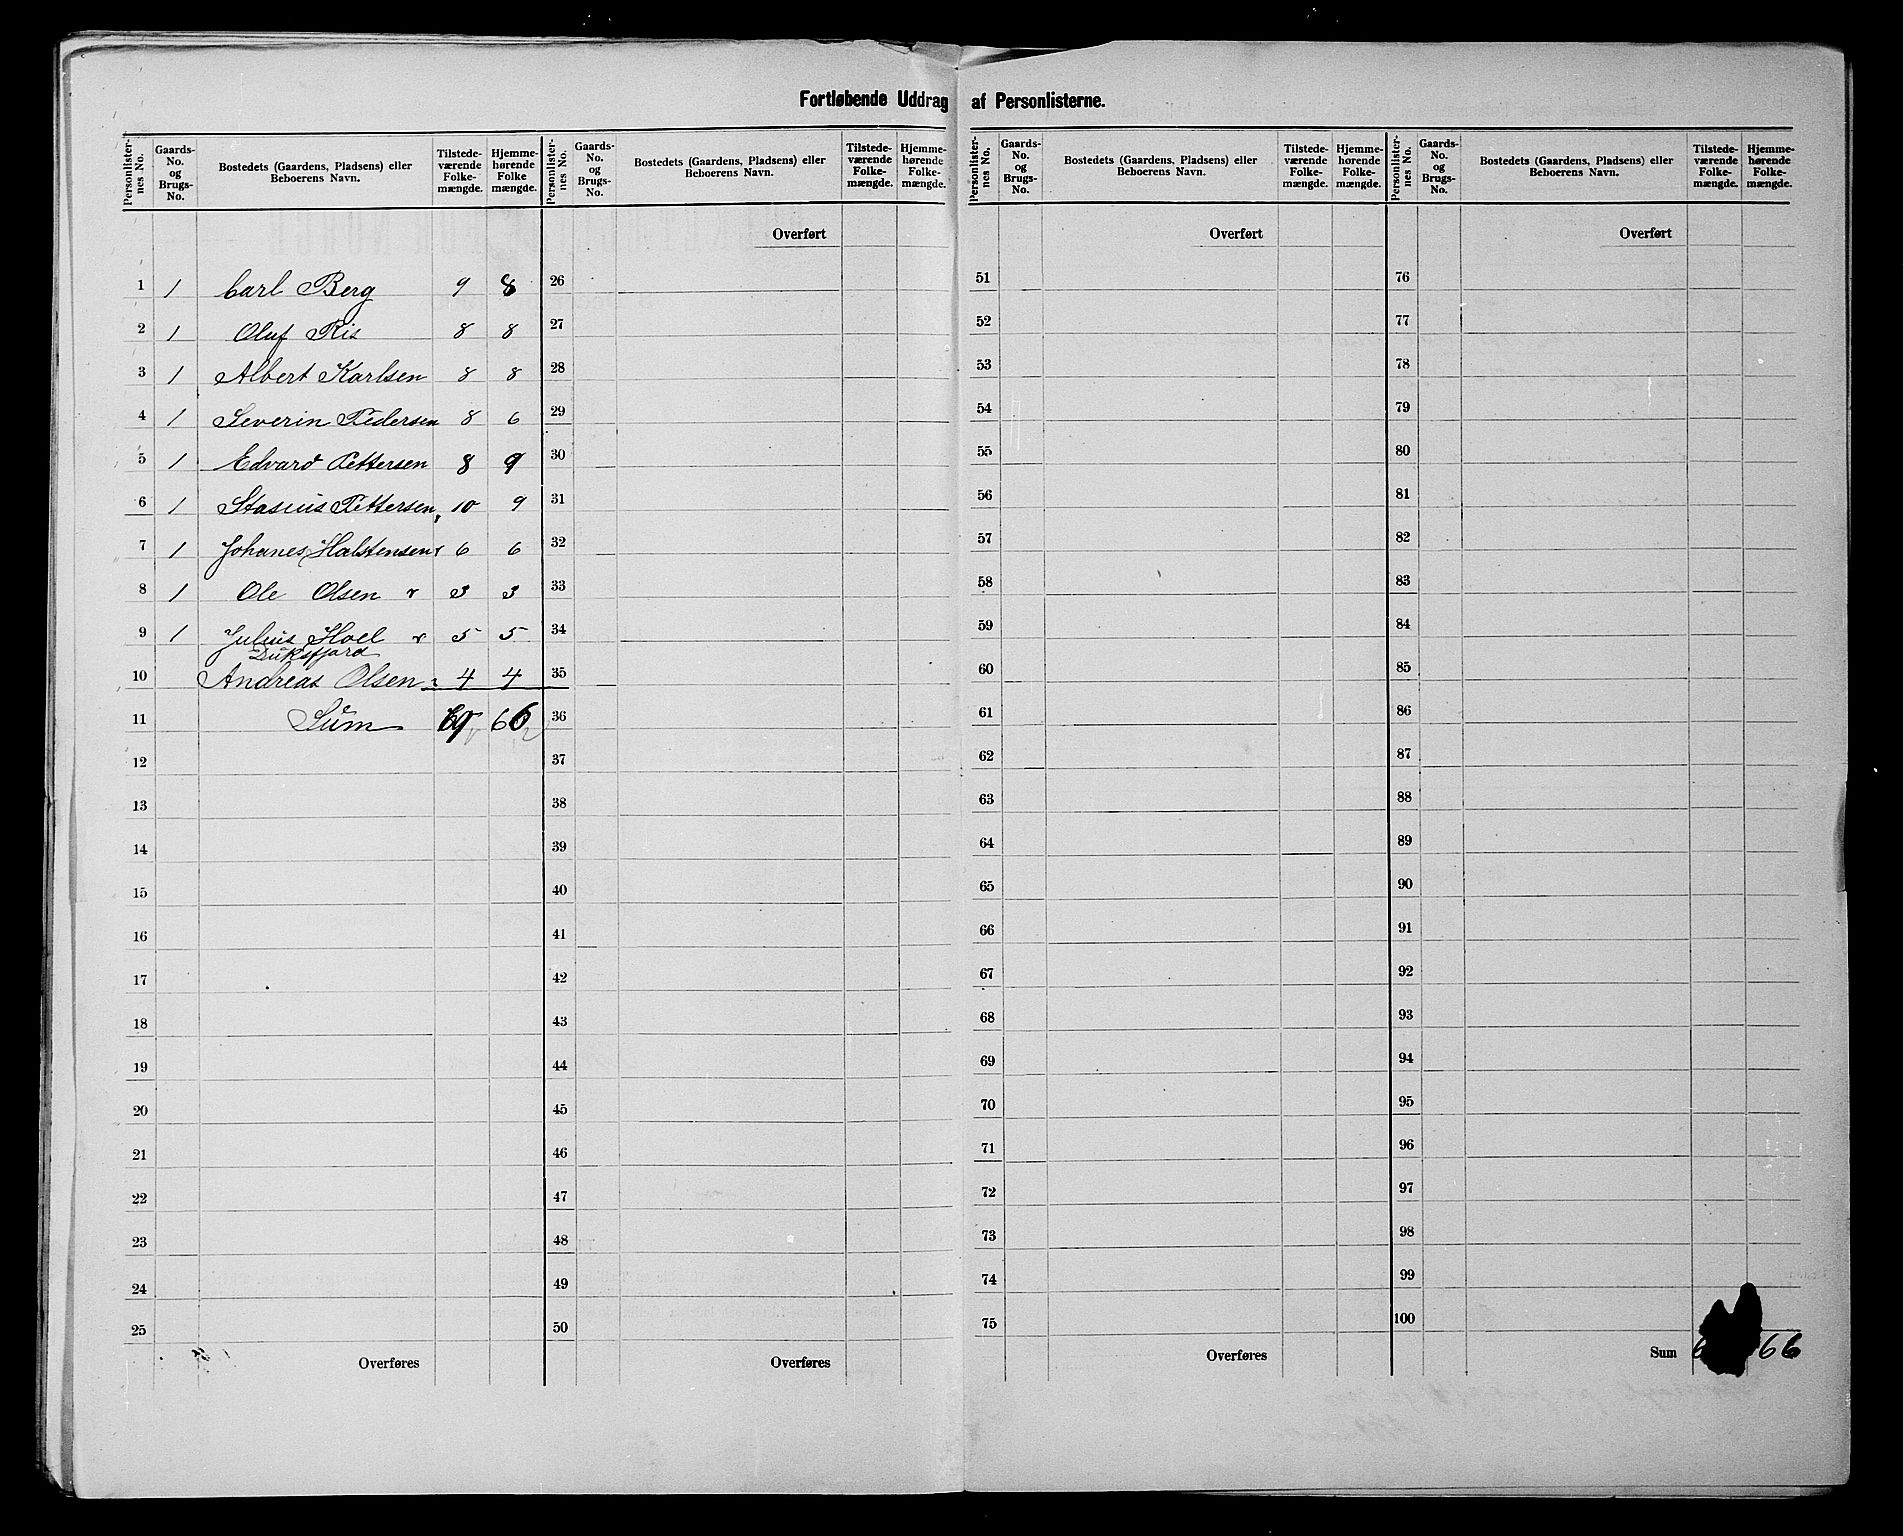 Fortløbende Uddrag af Personlisterne.
Personlister-nes No. | Gaards-No. og Brugs-No. | Bostedets (Gaardens, Pladsens) eller Beboerens Navn. | Tilstede-værende Folke-mængde. | Hjemme-hørende Folke mængde. | Personlister-nes No. | Gaards-No. og Brugs-No. | Bostedets (Gaardens, Pladsens) eller Beboerens Navn. | Tilstede-værende Folke-mængde. | Hjemme-hørende Folke-mængde. | Personlister-nes No. | Gaards-No. og Brugs-No. | Bostedets (Gaardens, Pladsens) eller Beboerens Navn. | Tilstede-værende Folke-mængde. | Hjemme-hørende Folke-mængde. | Personlister-nes No. | Gaards-No. og Brugs-No. | Bostedets (Gaardens, Pladsens) eller Beboerens Navn. | Tilstede-værende Folke-mængde. | Hjemme-hørende Folke-mængde.
Overført Overført Overført
1 1 Carl Berg 9 8 26 51 76
2 1 Oluf Ris 8 8 27 52 77
3 1 Albert Karlsen 8 8 28 53 78
4 1 Severin Pedersen 8 6 29 54 79
5 1 Edvard Pettersen 8 9 30 55 80
6 1 Stasius Pettersen 10 9 31 56 81
7 1 Johanes Halstensen 6 6 32 57 82
8 1 Ole Olsen 3 3 33 58 83
9 1 Julius Hoel 5 5 34 59 84
Duksfjord
10 Andreas Olsen 4 4 35 60 85
11 Sum 69 66 36 61 86
12 37 62 87
13 38 63 88
14 39 64 89
15 40 65 90
16 41 66 91
17 42 67 92
18 43 68 93
19 44 69 94
20 45 70 95
21 46 71 96
22 47 72 97
23 48 73 98
24 49 74 99
25 50 75 100
Overføres Overføres Overføres Sum 66